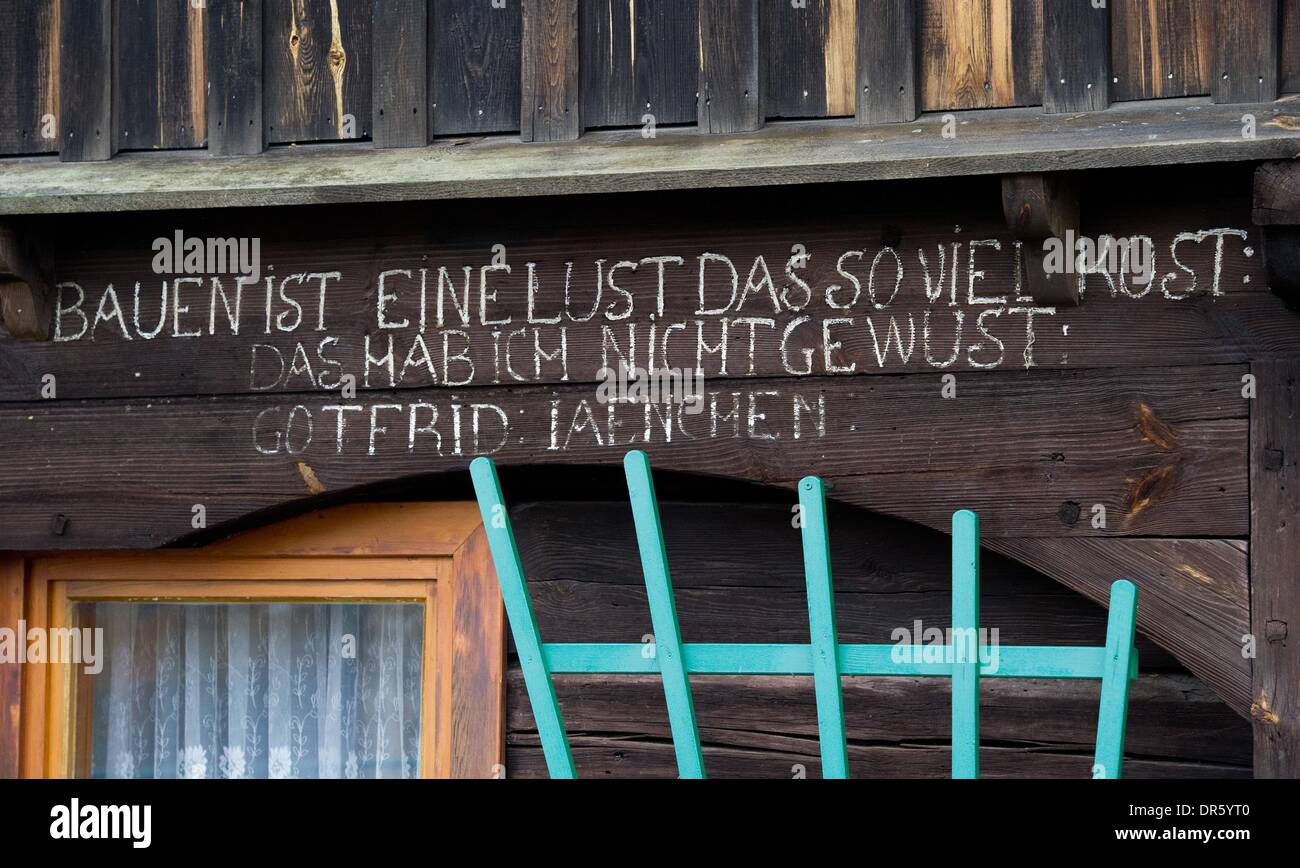 BAUEN IST EINE LUST DAS SO VIEL KOST:
DAS HAB ICH NICHT GEWUST:
GOTFRID: IAENCHEN.
a alamy stock photo
DR5YT0
www.alamy.com